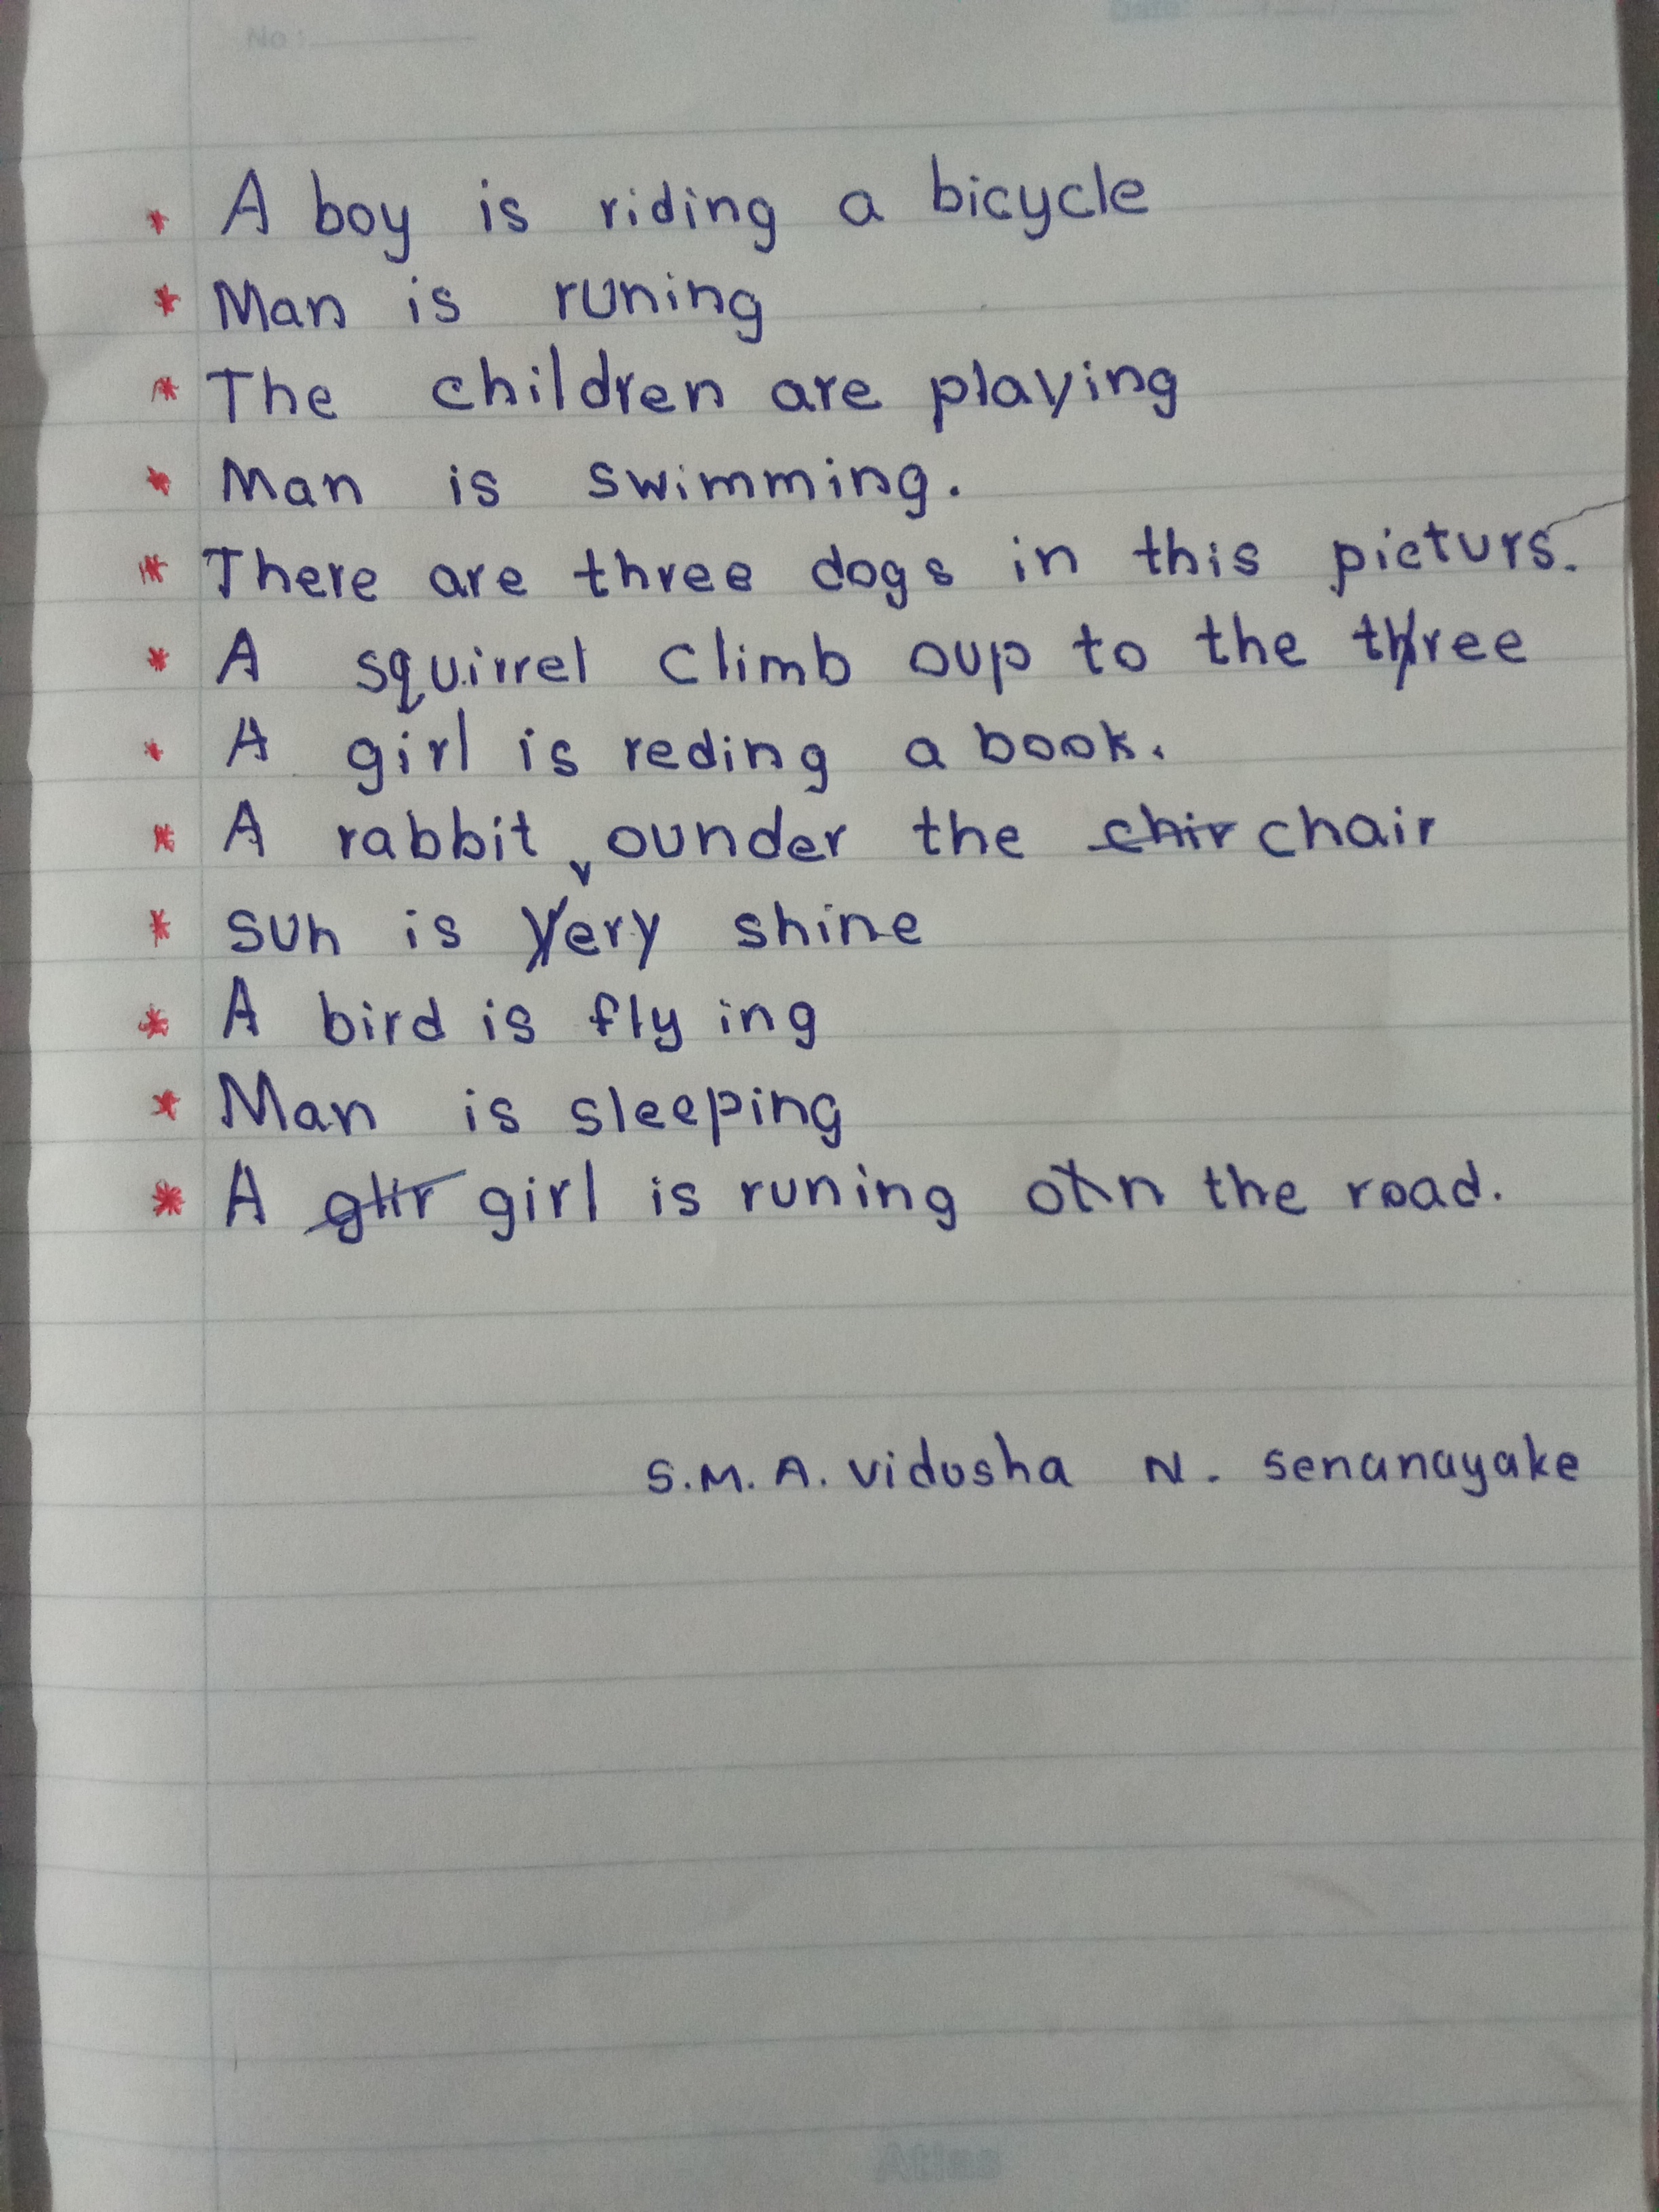 No :
Date :
* A boy is riding a bicycle
* Man is runing
* The children are playing
* Man is swimming.
* There are three dogs in this picturs.
* A squirrel climb oup to the tree
* A girl is reding a book.
* A rabbit ounder the chir chair
* sun is very shine
* A bird is fly ing
* Man is sleeping
* A girl is runing on the road.
S.M.A. vidusha N. senanayake
Atlas